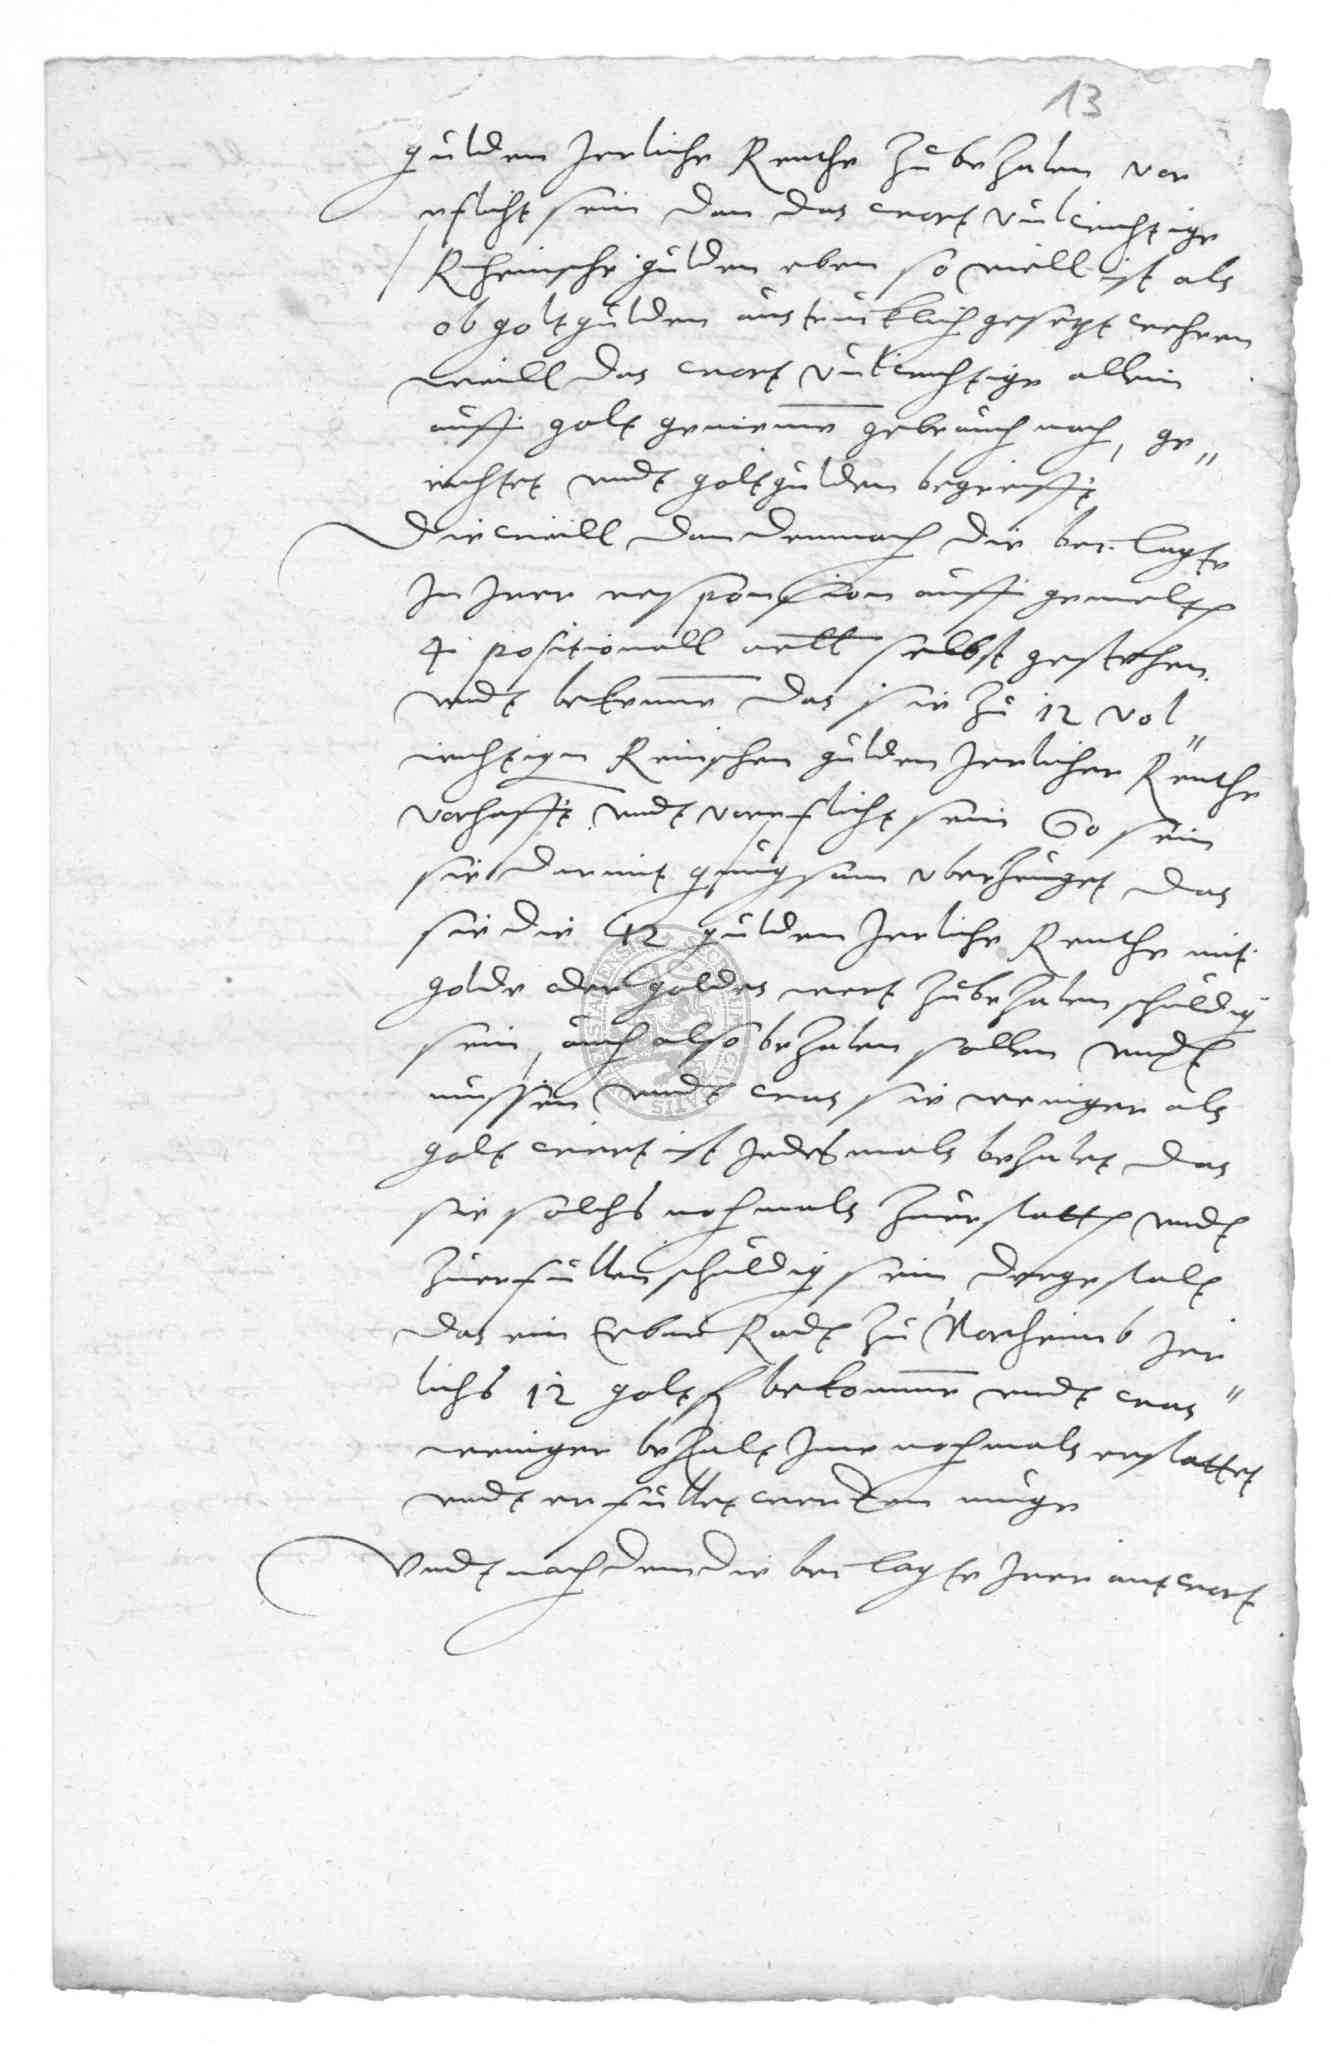 13
gulden Jerliche Renthe zu bezalen vor
pflicht sein dan das wort vulwichtige
Rheinische gulden eben so viell ist als
ob goltgulden austrucklich gesetzt wehren
weill das wort vulwichtige allein
auff golt gemeinem gebrauch nach, ge„
richtet undt goltgulden begreifft
Die weill dan demnach die beclagte
In Irer responsion auff gemelten
4 positionall selbst gestehen
undt bekennen das sie zu 12 vol„
wichtigen Reinischen gulden Jerlicher Renthe
vorhafft undt vorpflicht sein So sein
sie darmit gnugsam uberzeuget das
sie die 12 gulden Jerliche Renthe mit
golde oder goldes wert zubezalen schuldig
sein, auch also bezalen sollen undt
mussen undt was sie weniger als
golt wert ist Jedesmals bezalet das
sie solchs nochmals zuerstatten undt
zuerfullen schuldig sein dergestalt
das ein Erbar Radt zu Northeimb Jer„
lichs 12 goltf bekommen undt was
weniger bezalt Ime nochmals erstattet
undt erfullet werden muge
Undt nachdem die beclagte Irer antwort